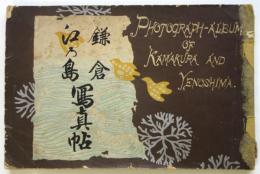 鎌倉
江の島
寫真帖
PHOTOGRAPH-ALBUM
OF
KAMAKURA AND
YENOSHIMA.